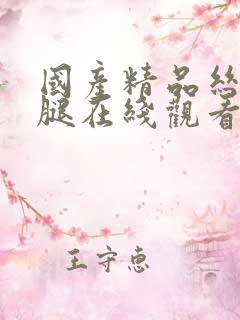 國產精品丝
腿在綫觀看
王守惠